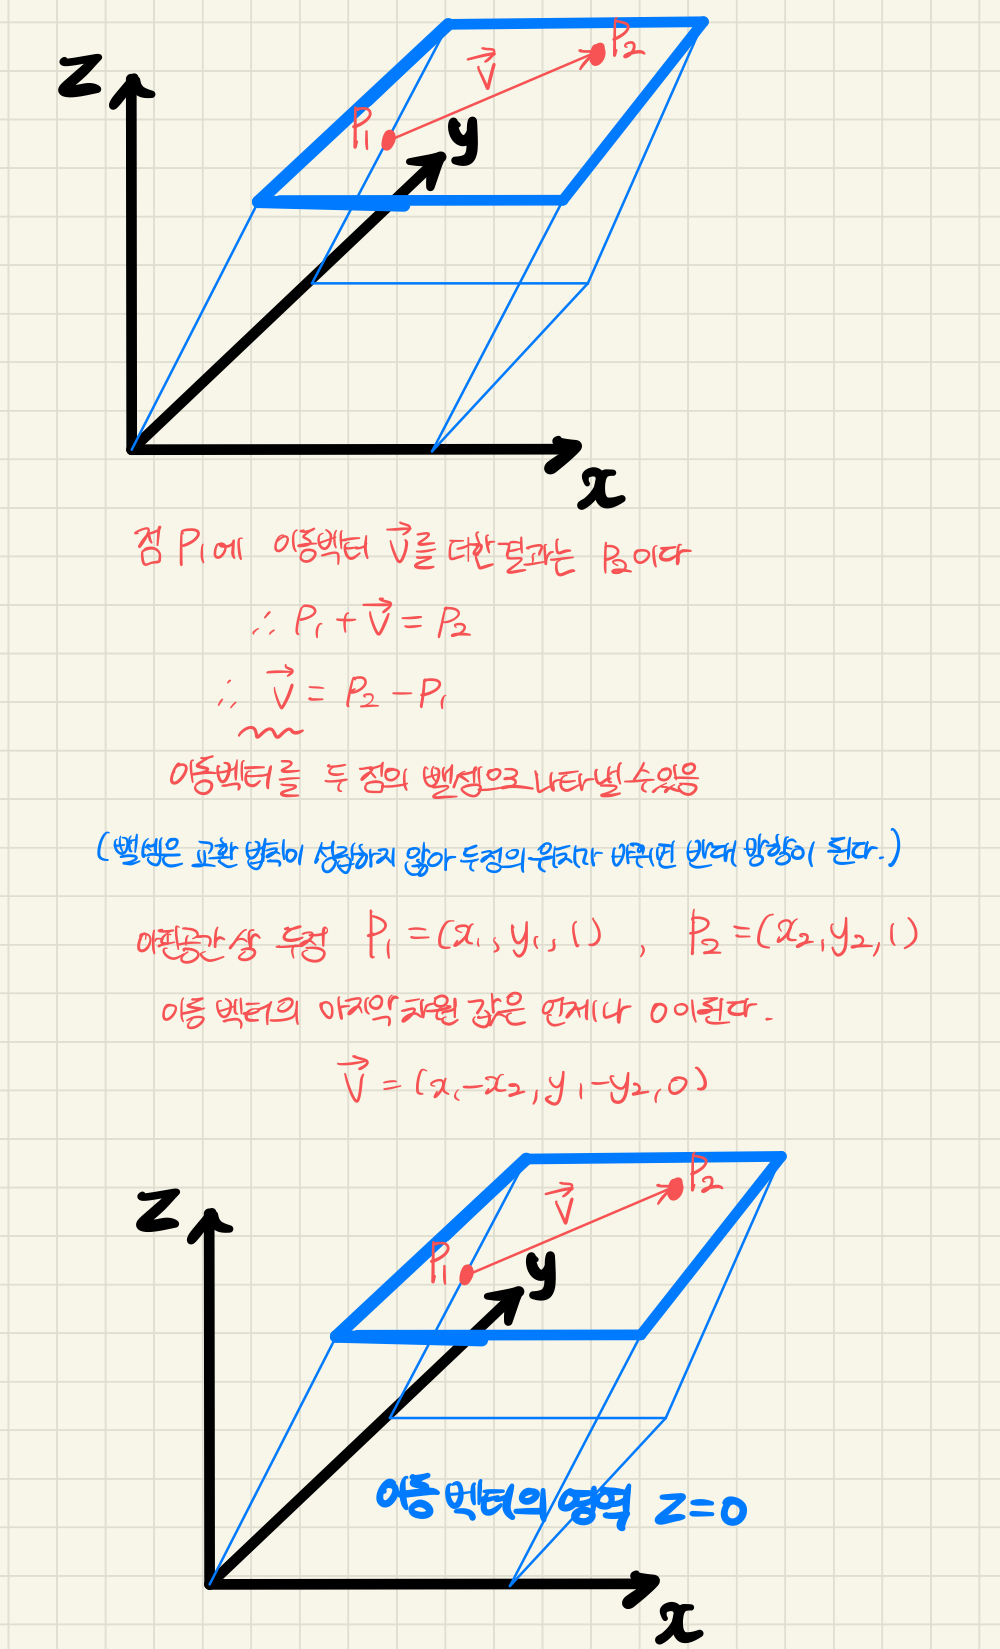 Z
P₂
V⃗
P₁
y
x
점 P₁에 이동벡터 V⃗를 더한 결과는 P₂이다
∴ P₁ + V⃗ = P₂
∴ V⃗ = P₂ - P₁
이동벡터를 두 점의 뺄셈으로 나타낼 수 있음
(뺄셈은 교환 법칙이 성립하지 않아 두점의 위치가 바뀌면 반대 방향이 된다.)
아핀공간 상 두점 P₁ = (x₁, y₁, 1) , P₂ = (x₂, y₂, 1)
이동 벡터의 마지막 차원 값은 언제나 0이된다.
V⃗ = (x₁-x₂, y₁-y₂, 0)
Z
P₂
V⃗
P₁
y
이동벡터의 영역 z=0
x